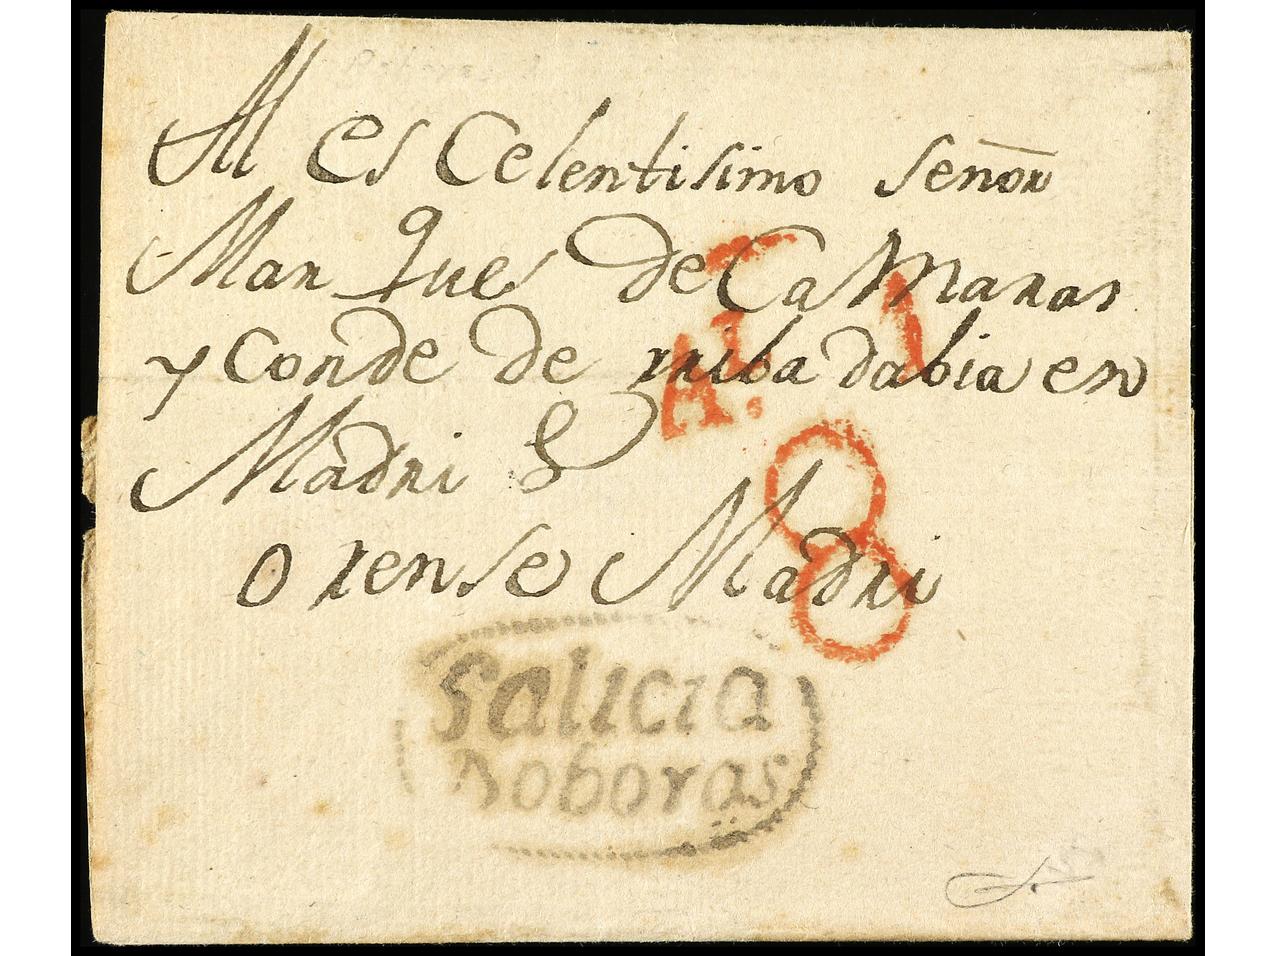 Al esCelentisimo señor
Marques de CaMarar
y conde de riba dabia en
Madri
orense Madri
Galicia
Boboras
8